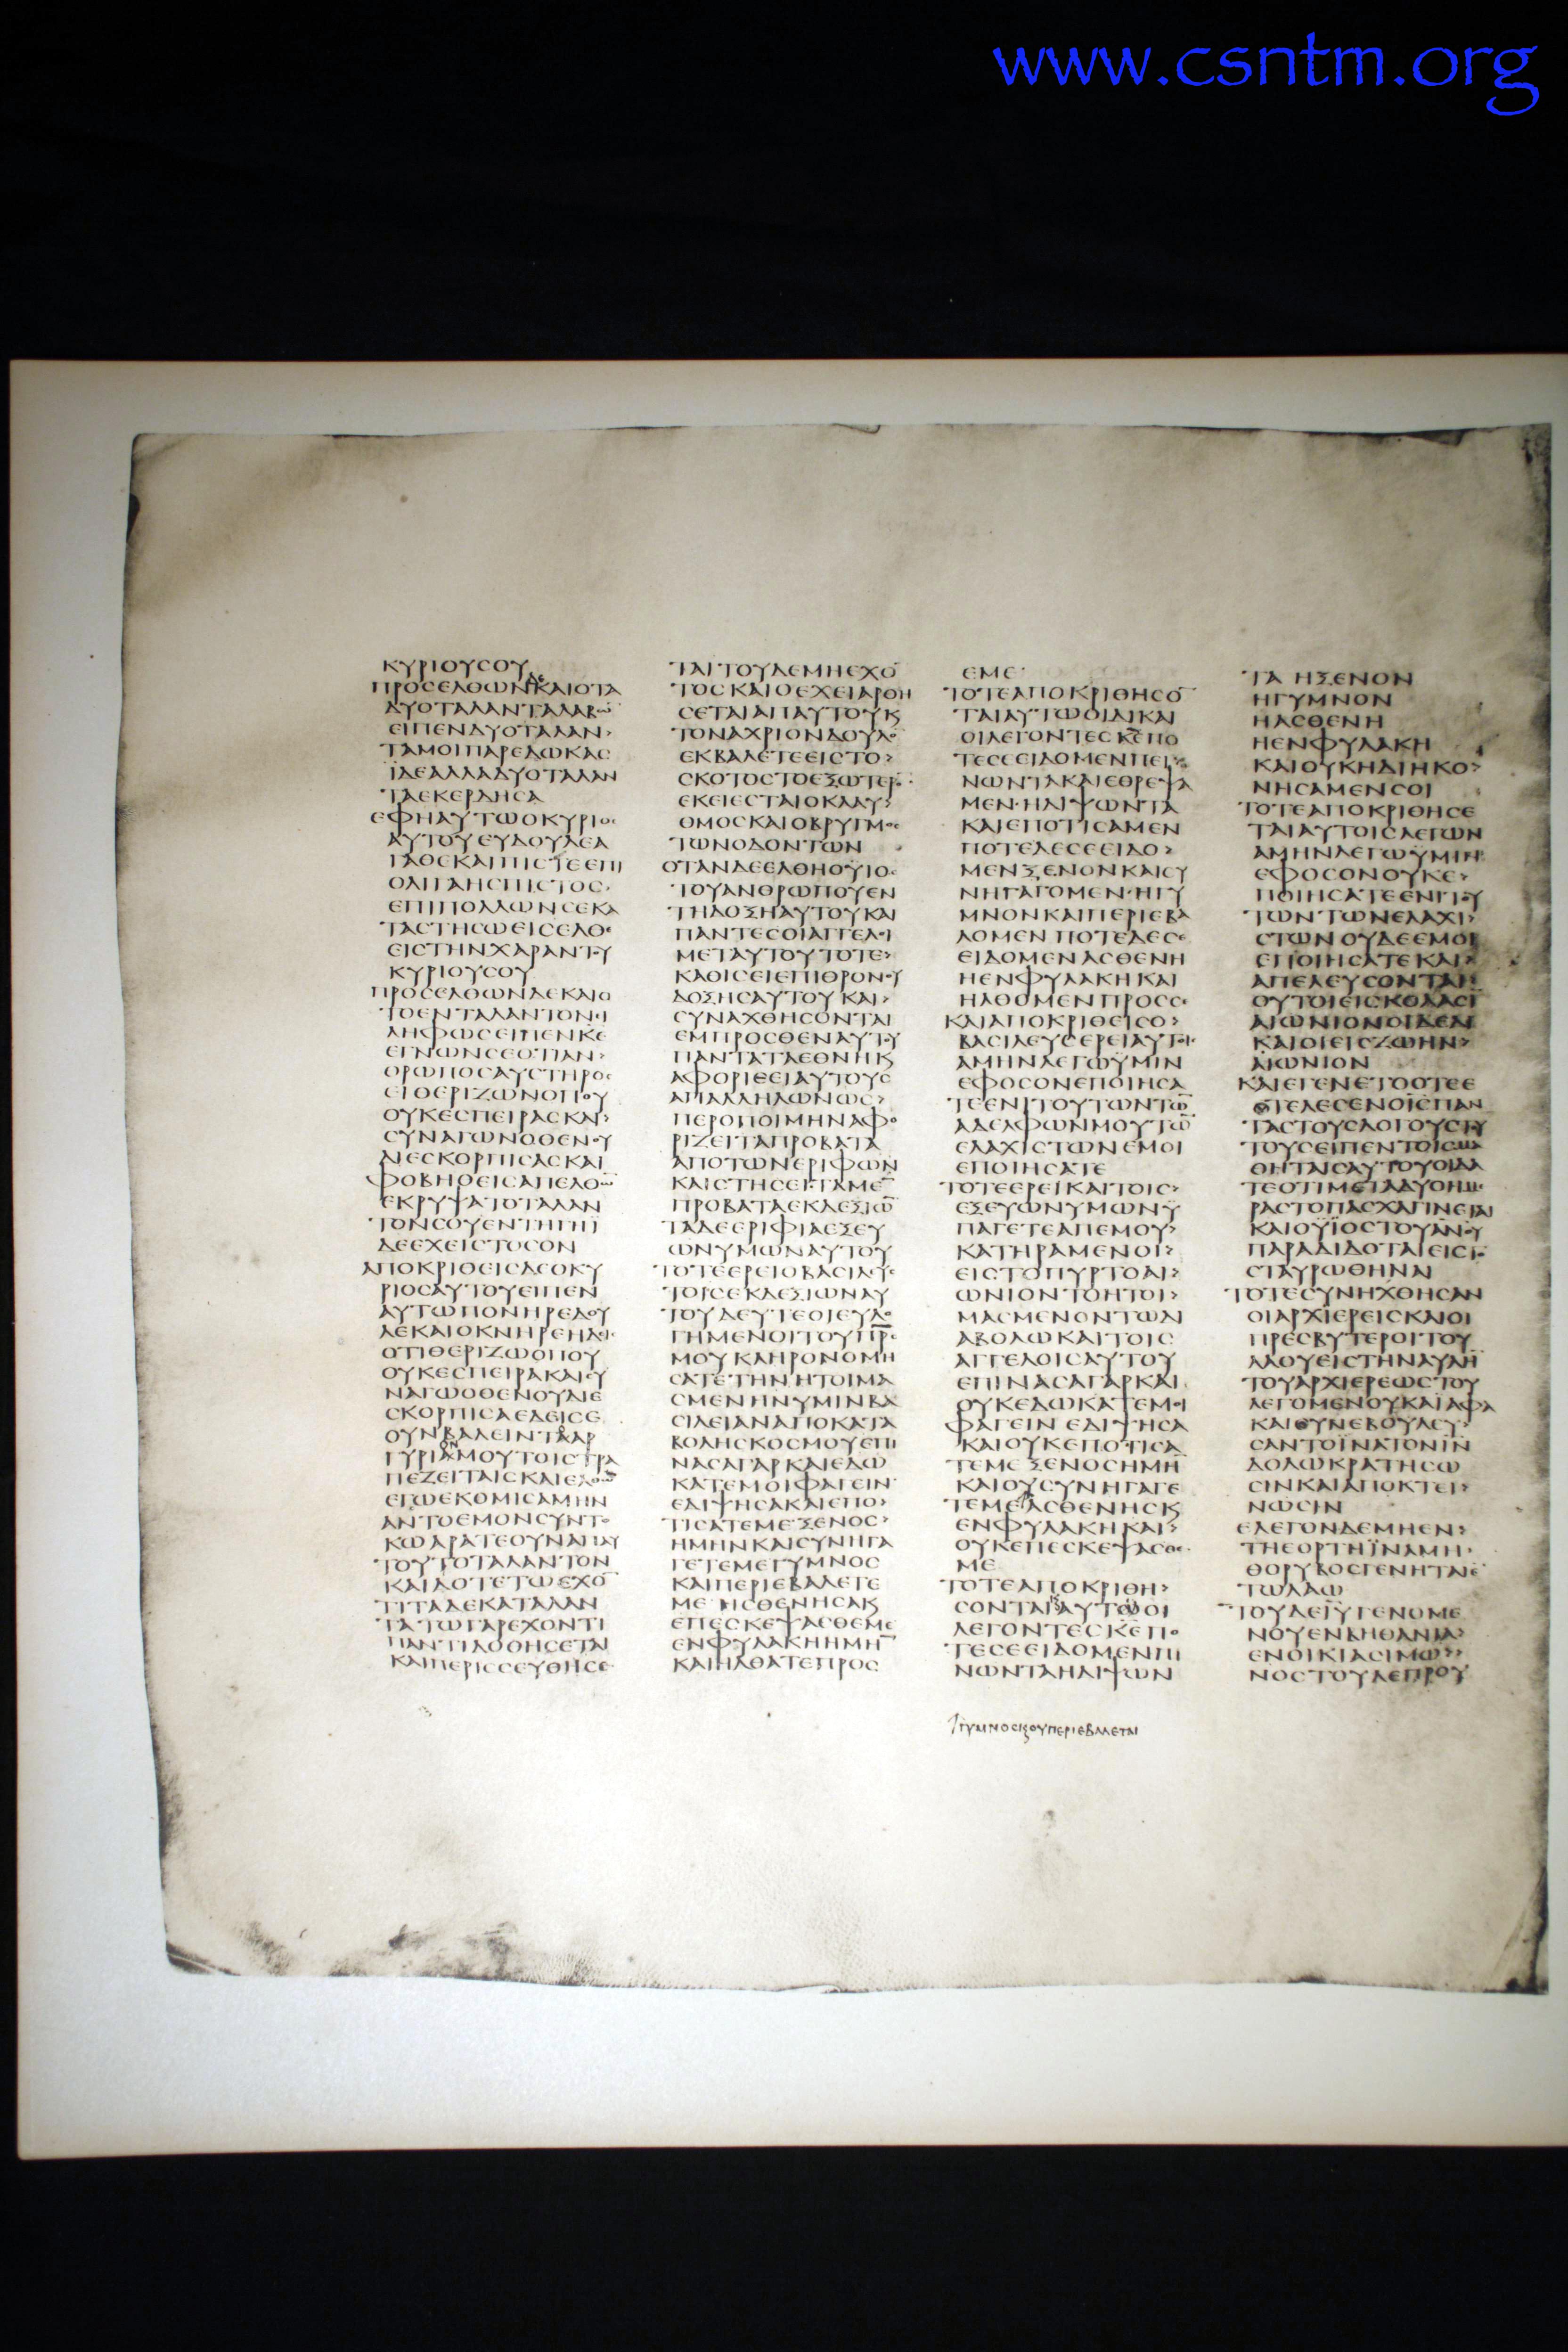 www.csntm.org
ΚΥΡΙΟΥCΟΥ
ΠΡΟCΕΛΘΩΝΔΕΚΑΙΟΤΑ
ΔΥΟΤΑΛΑΝΤΑΛΑΒΩ
ΕΙΠΕΝΔΥΟΤΑΛΑΝ>
ΤΑΜΟΙΠΑΡΕΔΩΚΑC
ΪΔΕΑΛΛΑΔΥΟΤΑΛΑΝ
ΤΑΕΚΕΡΔΗCΑ
ΕΦΗΑΥΤΩΟΚΥΡΙΟC
ΑΥΤΟΥΕΥΔΟΥΛΕΑ
ΓΑΘΕΚΑΙΠΙCΤΕΕΠΙ
ΟΛΙΓΑΗCΠΙCΤΟC
ΕΠΙΠΟΛΛΩΝCΕΚΑ
ΤΑCΤΗCΩΕΙCΕΛΘΕ
ΕΙCΤΗΝΧΑΡΑΝΤΟΥ
ΚΥΡΙΟΥCΟΥ
ΠΡΟCΕΛΘΩΝΔΕΚΑΙΟ
ΤΟΕΝΤΑΛΑΝΤΟΝΕΙ
ΛΗΦΩCΕΙΠΕΝΚΕ
ΕΓΝΩΝCΕΟΤΙΑΝ>
ΘΡΩΠΟCΑΥCΤΗΡΟC
ΕΙΘΕΡΙΖΩΝΟΠΟΥ
ΟΥΚΕCΠΕΙΡΑCΚΑΙ>
CΥΝΑΓΩΝΟΘΕΝΟΥ
ΔΙΕCΚΟΡΠΙCΑCΚΑΙ
ΦΟΒΗΘΕΙCΑΠΕΛΘΩ
ΕΚΡΥΨΑΤΟΤΑΛΑΝ
ΤΟΝCΟΥΕΝΤΗΓΗΪ
ΔΕΕΧΕΙCΤΟCΟΝ
ΑΠΟΚΡΙΘΕΙCΔΕΟΚΥ
ΡΙΟCΑΥΤΟΥΕΙΠΕΝ
ΑΥΤΩΠΟΝΗΡΕΔΟΥ
ΛΕΚΑΙΟΚΝΗΡΕΗΔΕΙC
ΟΤΙΘΕΡΙΖΩΟΠΟΥ
ΟΥΚΕCΠΕΙΡΑΚΑΙCΥ
ΝΑΓΩΟΘΕΝΟΥΔΙΕ
CΚΟΡΠΙCΑΕΔΕΙCΕ
ΟΥΝΒΑΛΕΙΝΤΑΑΡ
ΓΥΡΙΑΜΟΥΤΟΙCΤΡΑ
ΠΕΖΕΙΤΑΙCΚΑΙΕΛΘΩ
ΕΓΩΕΚΟΜΙCΑΜΗΝ
ΑΝΤΟΕΜΟΝCΥΝΤΟ
ΚΩΑΡΑΤΕΟΥΝΑΠΑΥ
ΤΟΥΤΟΤΑΛΑΝΤΟΝ
ΚΑΙΔΟΤΕΤΩΕΧΟ
ΤΙΤΑΔΕΚΑΤΑΛΑΝ
ΤΑΤΩΓΑΡΕΧΟΝΤΙ
ΠΑΝΤΙΔΟΘΗCΕΤΑΙ
ΚΑΙΠΕΡΙCCΕΥΘΗCΕ
ΤΑΙΤΟΥΔΕΜΗΕΧΟ
ΤΟCΚΑΙΟΕΧΕΙΑΡΘΗ
CΕΤΑΙΑΠΑΥΤΟΥΚ
ΤΟΝΑΧΡΙΟΝΔΟΥΛΟ
ΕΚΒΑΛΕΤΕΕΙCΤΟ>
CΚΟΤΟCΤΟΕΞΩΤΕΡΟ
ΕΚΕΙΕCΤΑΙΟΚΛΑΥ>
ΘΜΟCΚΑΙΟΒΡΥΓΜΟC
ΤΩΝΟΔΟΝΤΩΝ
ΟΤΑΝΔΕΕΛΘΗΟΫΙΟC
ΤΟΥΑΝΘΡΩΠΟΥΕΝ
ΤΗΔΟΞΗΑΥΤΟΥΚΑΙ
ΠΑΝΤΕCΟΙΑΓΓΕΛΟΙ
ΜΕΤΑΥΤΟΥΤΟΤΕ>
ΚΑΘΙCΕΙΕΠΙΘΡΟΝΟΥ
ΔΟΞΗCΑΥΤΟΥΚΑΙ>
CΥΝΑΧΘΗCΟΝΤΑΙ
ΕΜΠΡΟCΘΕΝΑΥΤΟΥ
ΠΑΝΤΑΤΑΕΘΝΗΚ
ΑΦΟΡΙCΕΙΑΥΤΟΥC
ΑΠΑΛΛΗΛΩΝΩC>
ΠΕΡΟΠΟΙΜΗΝΑΦΟ
ΡΙΖΕΙΤΑΠΡΟΒΑΤΑ
ΑΠΟΤΩΝΕΡΙΦΩΝ
ΚΑΙCΤΗCΕΙΤΑΜΕ
ΠΡΟΒΑΤΑΕΚΔΕΞΙΩ
ΤΑΔΕΕΡΙΦΙΑΕΞΕΥ
ΩΝΥΜΩΝΑΥΤΟΥ
ΤΟΤΕΕΡΕΙΟΒΑCΙΛΕΥC
ΤΟΙCΕΚΔΕΞΙΩΝΑΥ
ΤΟΥΔΕΥΤΕΟΙΕΥΛΟ
ΓΗΜΕΝΟΙΤΟΥΠΡC
ΜΟΥΚΛΗΡΟΝΟΜΗ
CΑΤΕΤΗΝΗΤΟΙΜΑ
CΜΕΝΗΝΥΜΙΝΒΑ
CΙΛΕΙΑΝΑΠΟΚΑΤΑ
ΒΟΛΗCΚΟCΜΟΥΕΠΙ
ΝΑCΑΓΑΡΚΑΙΕΔΩ
ΚΑΤΕΜΟΙΦΑΓΕΙΝ
ΕΔΙΨΗCΑΚΑΙΕΠΟ>
ΤΙCΑΤΕΜΕΞΕΝΟC>
ΗΜΗΝΚΑΙCΥΝΗΓΑ
ΓΕΤΕΜΕΓΥΜΝΟC
ΚΑΙΠΕΡΙΕΒΑΛΕΤΕ
ΜΕΗCΘΕΝΗCΑΚ
ΕΠΕCΚΕΨΑCΘΕΜΕ
ΕΝΦΥΛΑΚΗΗΜΗ
ΚΑΙΗΛΘΑΤΕΠΡΟC
ΕΜΕ
ΤΟΤΕΑΠΟΚΡΙΘΗCΟ
ΤΑΙΑΥΤΩΟΙΔΙΚΑΙ
ΟΙΛΕΓΟΝΤΕCΚΕΠΟ
ΤΕCΕΕΙΔΟΜΕΝΠΕΙ
ΝΩΝΤΑΚΑΙΕΘΡΕΨΑ
ΜΕΝΗΔΙΨΩΝΤΑ
ΚΑΙΕΠΟΤΙCΑΜΕΝ
ΠΟΤΕΔΕCΕΕΙΔΟ>
ΜΕΝΞΕΝΟΝΚΑΙCΥ
ΝΗΓΑΓΟΜΕΝΗΓΥ
ΜΝΟΝΚΑΙΠΕΡΙΕΒΑ
ΛΟΜΕΝΠΟΤΕΔΕCΕ
ΕΙΔΟΜΕΝΑCΘΕΝΗ
ΗΕΝΦΥΛΑΚΗΚΑΙ
ΗΛΘΟΜΕΝΠΡΟCCΕ
ΚΑΙΑΠΟΚΡΙΘΕΙCΟ>
ΒΑCΙΛΕΥCΕΡΕΙΑΥΤΟΙC
ΑΜΗΝΛΕΓΩΫΜΙΝ
ΕΦΟCΟΝΕΠΟΙΗCΑ
ΤΕΕΝΙΤΟΥΤΩΝΤΩ
ΑΔΕΛΦΩΝΜΟΥΤΩ
ΕΛΑΧΙCΤΩΝΕΜΟΙ
ΕΠΟΙΗCΑΤΕ
ΤΟΤΕΕΡΕΙΚΑΙΤΟΙC>
ΕΞΕΥΩΝΥΜΩΝΫ
ΠΑΓΕΤΕΑΠΕΜΟΥ>
ΚΑΤΗΡΑΜΕΝΟΙ>
ΕΙCΤΟΠΥΡΤΟΑΙ>
ΩΝΙΟΝΤΟΗΤΟΙ>
ΜΑCΜΕΝΟΝΤΩΔΙ
ΑΒΟΛΩΚΑΙΤΟΙC
ΑΓΓΕΛΟΙCΑΥΤΟΥ
ΕΠΙΝΑCΑΓΑΡΚΑΙ
ΟΥΚΕΔΩΚΑΤΕΜΟΙ
ΦΑΓΕΙΝΕΔΙΨΗCΑ
ΚΑΙΟΥΚΕΠΟΤΙCΑ
ΤΕΜΕΞΕΝΟCΗΜΗ
ΚΑΙΟΥCΥΝΗΓΑΓΕ
ΤΕΜΕΑCΘΕΝΗCΚ
ΕΝΦΥΛΑΚΗΚΑΙ>
ΟΥΚΕΠΕCΚΕΨΑCΘΕ
ΜΕ
ΤΟΤΕΑΠΟΚΡΙΘΗ>
CΟΝΤΑΙΑΥΤΩΟΙ
ΛΕΓΟΝΤΕCΚΕΠΟ
ΤΕCΕΕΙΔΟΜΕΝΠΙ
ΝΩΝΤΑΗΔΙΨΩΝ
ΓΥΜΝΟCΚΟΥΠΕΡΙΕΒΑΛΕΤΑΙ
ΤΑΗΞΕΝΟΝ
ΗΓΥΜΝΟΝ
ΗΑCΘΕΝΗ
ΗΕΝΦΥΛΑΚΗ
ΚΑΙΟΥΚΗΔΙΗΚΟ>
ΝΗCΑΜΕΝCΟΙ
ΤΟΤΕΑΠΟΚΡΙΘΗCΕ
ΤΑΙΑΥΤΟΙCΛΕΓΩΝ
ΑΜΗΝΛΕΓΩΫΜΙΝ
ΕΦΟCΟΝΟΥΚΕ>
ΠΟΙΗCΑΤΕΕΝΙΤΟΥ
ΤΩΝΤΩΝΕΛΑΧΙ>
CΤΩΝΟΥΔΕΕΜΟΙ
ΕΠΟΙΗCΑΤΕΚΑΙ>
ΑΠΕΛΕΥCΟΝΤΑΙ
ΟΥΤΟΙΕΙCΚΟΛΑCΙ
ΑΙΩΝΙΟΝΟΙΔΕΔΙ
ΚΑΙΟΙΕΙCΖΩΗΝ>
ΑΙΩΝΙΟΝ
ΚΑΙΕΓΕΝΕΤΟΟΤΕΕ
ΤΕΛΕCΕΝΟΙCΠΑΝ
ΤΑCΤΟΥCΛΟΓΟΥC
ΤΟΥCΕΙΠΕΝΤΟΙCΜΑ
ΘΗΤΑΙCΑΥΤΟΥΟΙΔΑ
ΤΕΟΤΙΜΕΤΑΔΥΟΗΜΕ
ΡΑCΤΟΠΑCΧΑΓΙΝΕΤΑΙ
ΚΑΙΟΫΪΟCΤΟΥΑΝΟΥ
ΠΑΡΑΔΙΔΟΤΑΙΕΙCΤΟ
CΤΑΥΡΩΘΗΝΑΙ
ΤΟΤΕCΥΝΗΧΘΗCΑΝ
ΟΙΑΡΧΙΕΡΕΙCΚΑΙΟΙ
ΠΡΕCΒΥΤΕΡΟΙΤΟΥ
ΛΑΟΥΕΙCΤΗΝΑΥΛΗ
ΤΟΥΑΡΧΙΕΡΕΩCΤΟΥ
ΛΕΓΟΜΕΝΟΥΚΑΪΑΦΑ
ΚΑΙCΥΝΕΒΟΥΛΕΥ>
CΑΝΤΟΪΝΑΤΟΝΙΝ
ΔΟΛΩΚΡΑΤΗCΩ
CΙΝΚΑΙΑΠΟΚΤΕΙ>
ΝΩCΙΝ
ΕΛΕΓΟΝΔΕΜΗΕΝ>
ΤΗΕΟΡΤΗΪΝΑΜΗ
ΘΟΡΥΒΟCΓΕΝΗΤΑΙΕ
ΤΩΛΑΩ
ΤΟΥΔΕΙΥΓΕΝΟΜΕ
ΝΟΥΕΝΒΗΘΑΝΙΑ>
ΕΝΟΙΚΙΑCΙΜΩ>>
ΝΟCΤΟΥΛΕΠΡΟΥ